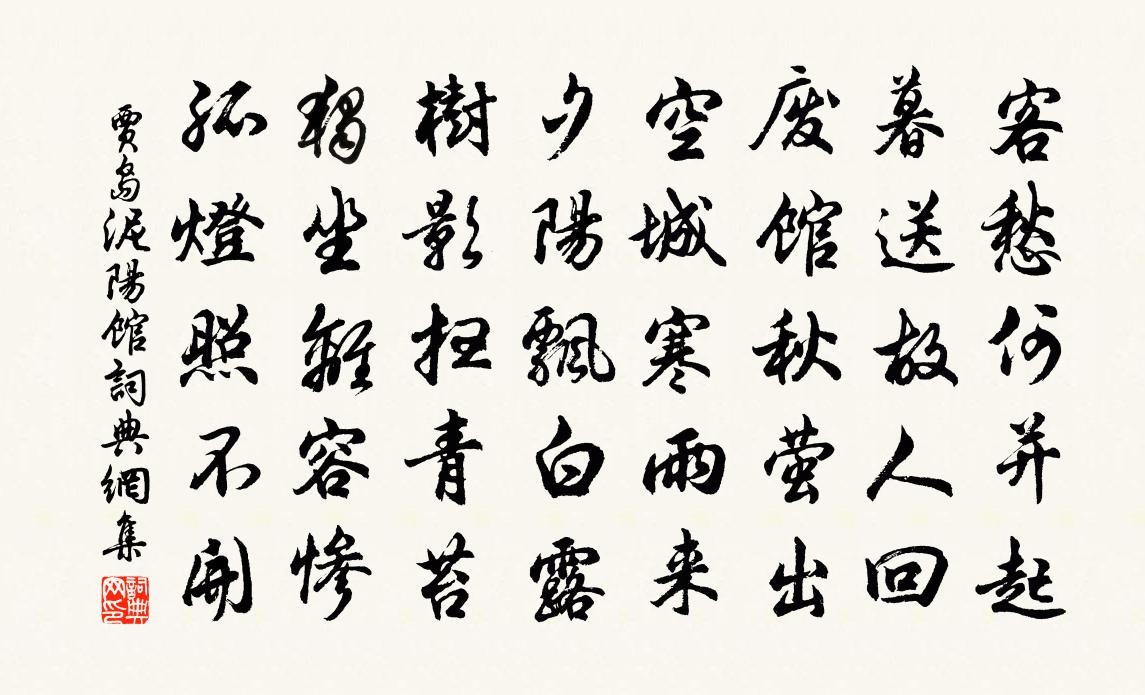 客愁何并起
暮送故人回
废馆秋萤出
空城寒雨来
夕陽飄白露
樹影扫青苔
獨坐離容惨
孤燈照不開
賈島泥陽館詞典網集
詞典网印